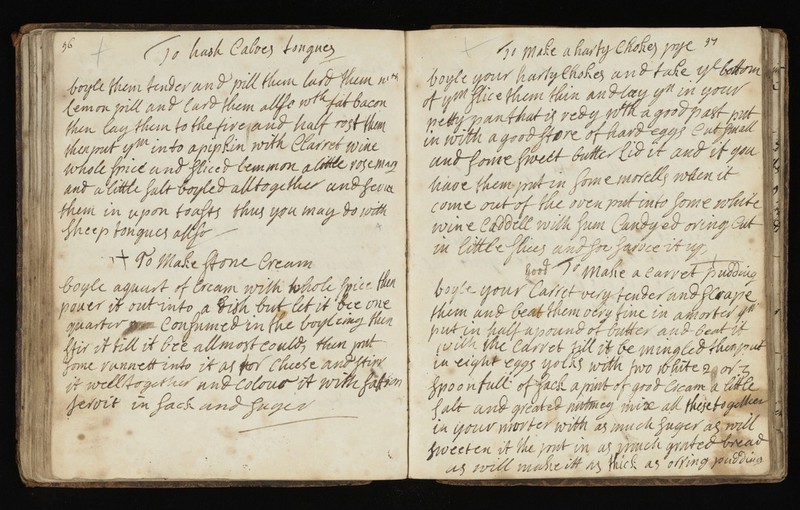 56
To hash Calves tongues
boyle them tender and pill them lard them wth
Lemon pill and lard them allso wth fat bacon
then lay them to the fire and half rost them
then put ym into a pipkin with Clarret wine
whole spice and sliced lemmon a little rosemary
and a little salt boyled alltogether and serve
them in upon toasts thus you may do with
sheep tongues allso
To Make stone Cream
boyle a quart of Cream with whole spice then
power it out into a dish but let it bee one
quarter Consumed in the boyleing then
stir it till it bee allmost could, then put
some runnett into it as for Cheese and stir
it well together and colour it with saffron
servit in sack and suger
57
To make a harty Chokes pye
boyle your harty Chokes and take ye bottom
of ym slice them thin and lay ym in your
petty pan that is redy wth a good past put
in with a good store of hard eggs Cut small
and some sweet butter Lid it and if you
have them put in some morells when it
come out of the oven put into some white
wine Caddell with sum Candyed oring Cut
in little slices and soe sarvce it up
good To Make a carret pudding
boyle your Carret very tender and scrape
them and beat them very fine in a morter yn
put in half a pound of butter and beat it
with the Carret till it be mingled then put
in eight eggs yolks with two white 2 or 3
spoonfull of sack a pint of good Cream a little
salt and greated nutmeg mixe all these together
in your morter with as much suger as will
sweeten it the put in as much grated bread
as will make itt as thick as orring pudding